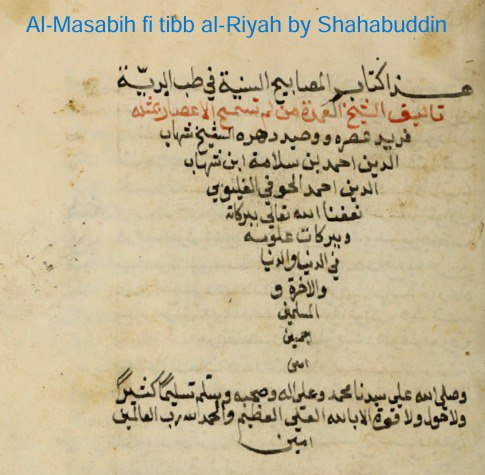 Al-Masabih fi tibb al-Riyah by Shahabuddin
هذا كتاب المصابيح السنية في طب البرية
تاليف الشيخ العمدة من لم تسمح الاعصار بمثله
فريد عصره ووحيد دهره الشيخ شهاب
الدين احمد بن سلامة ابن شهاب
الدين احمد الحوفي القليوبي
نفعنا الله تعالى ببركاته
وببركات علومه
في الدنيا والدنيا
والاخرة و
المسلمين
اجمعين
امين
وصلى الله على سيدنا محمد وعلى اله وصحبه وسلم تسليما كثيرا
ولا حول ولا قوة الا بالله العلي العظيم والحمد لله رب العالمين
امين